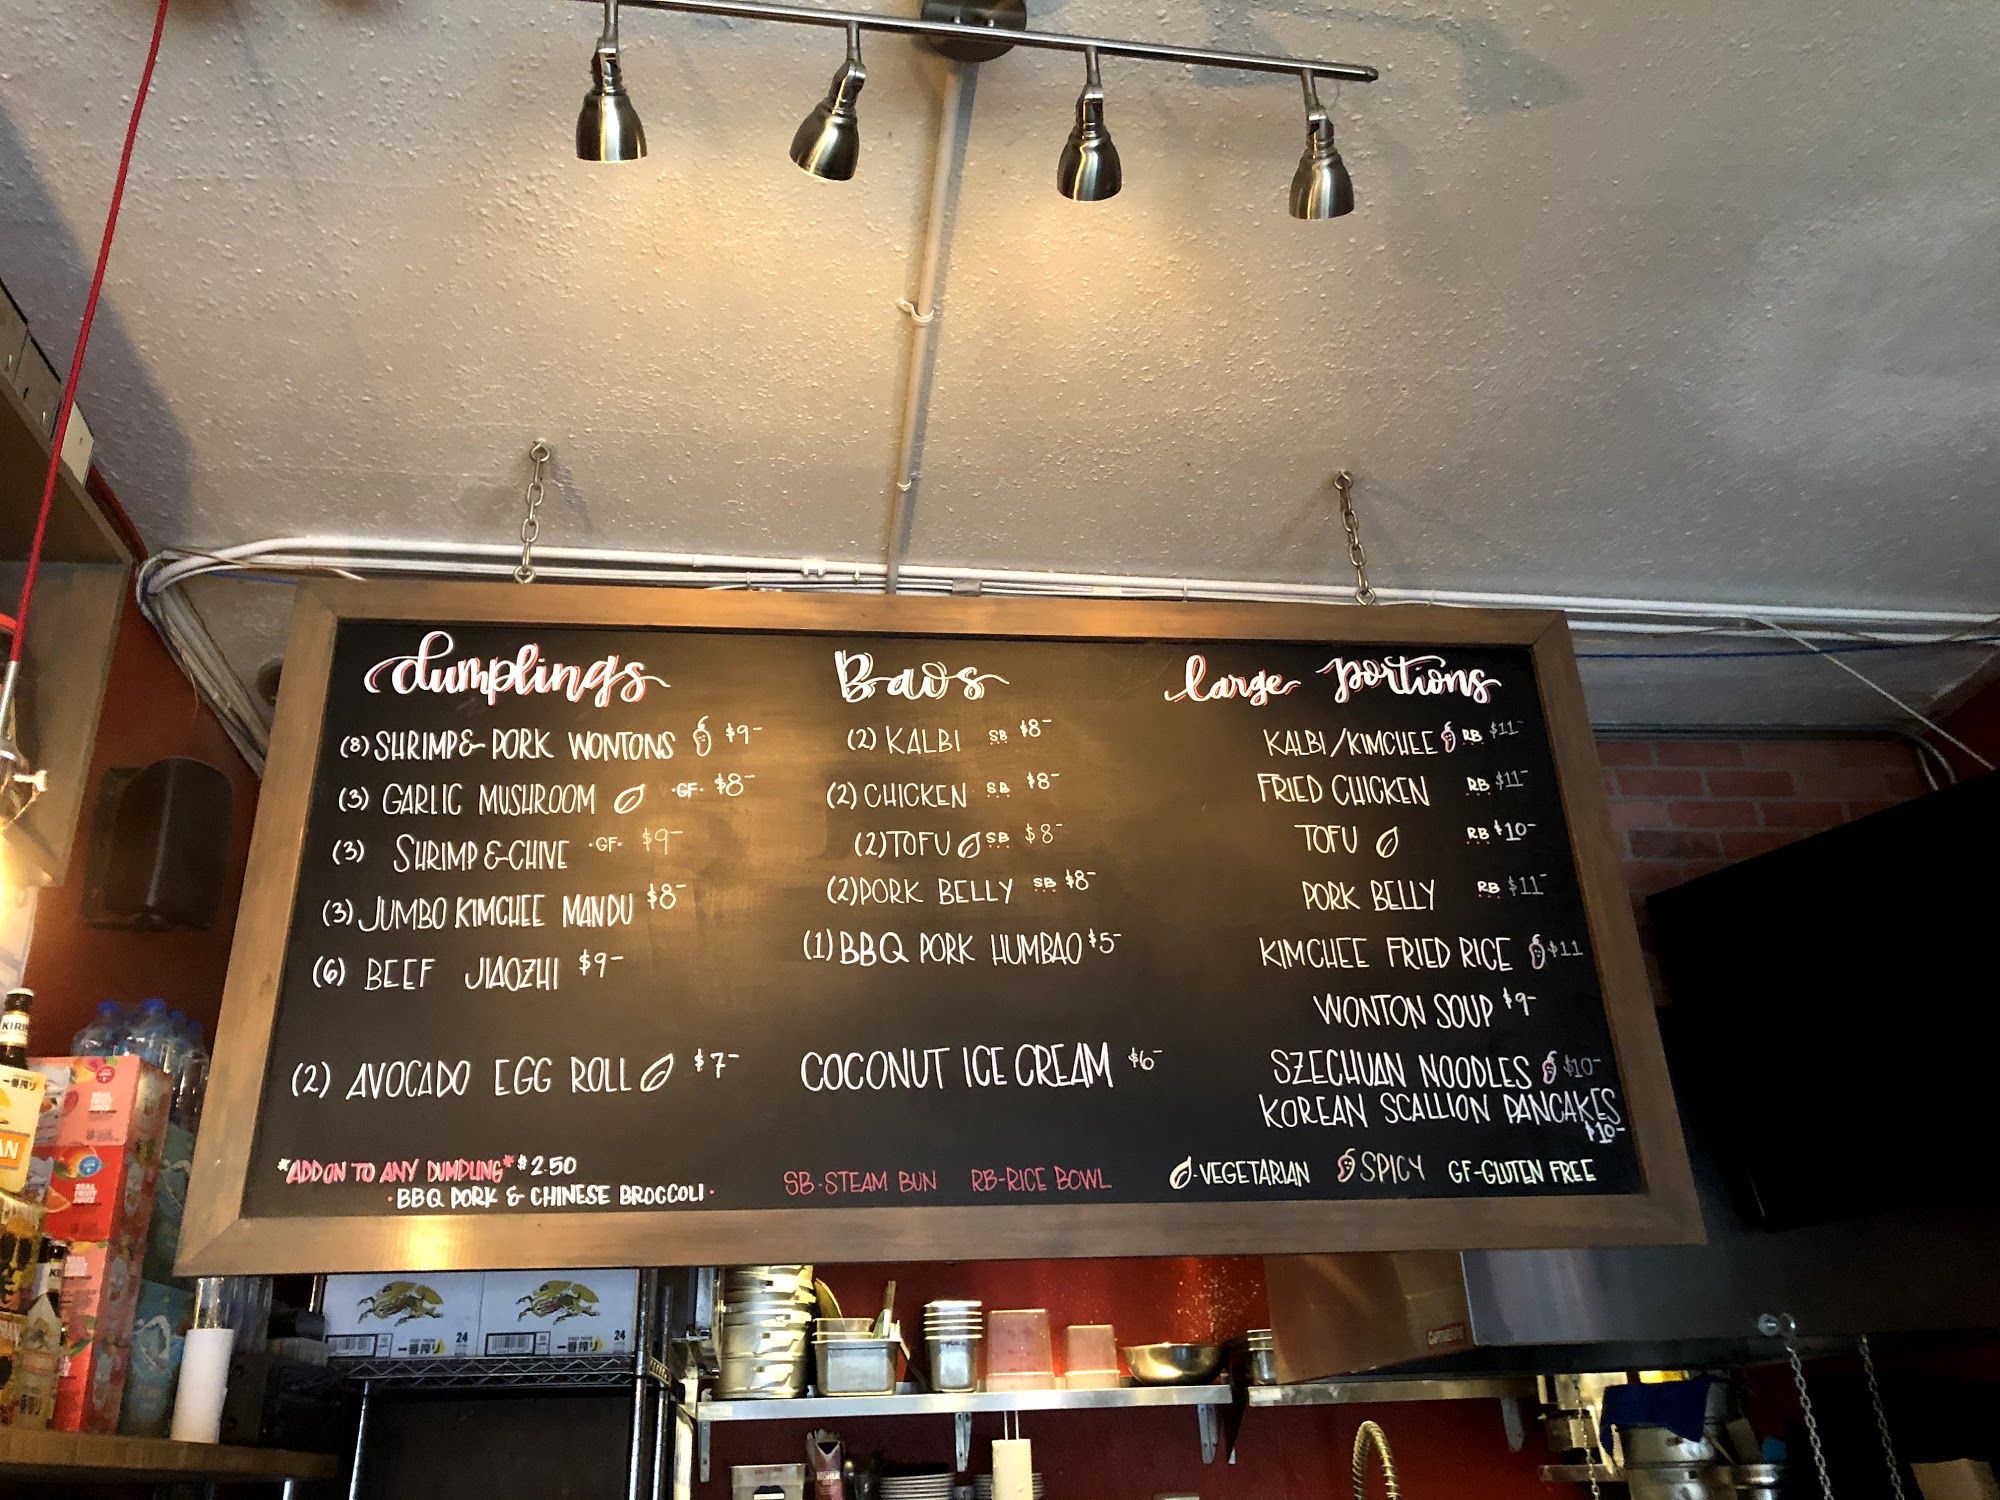 dumplings
(8) SHRIMP & PORK WONTONS $9-
(3) GARLIC MUSHROOM ·GF· $8-
(3) SHRIMP & CHIVE ·GF· $9-
(3) JUMBO KIMCHEE MANDU $8-
(6) BEEF JIAOZHI $9-
(2) AVOCADO EGG ROLL $7-
*ADD ON TO ANY DUMPLING* $2.50
·BBQ PORK & CHINESE BROCCOLI·
Baos
(2) KALBI SB $8-
(2) CHICKEN SB $8-
(2) TOFU SB $8-
(2) PORK BELLY SB $8-
(1) BBQ PORK HUMBAO $5-
COCONUT ICE CREAM $6-
SB-STEAM BUN RB-RICE BOWL
large portions
KALBI/KIMCHEE RB $11-
FRIED CHICKEN RB $11-
TOFU RB $10-
PORK BELLY RB $11-
KIMCHEE FRIED RICE $11
WONTON SOUP $9-
SZECHUAN NOODLES $10-
KOREAN SCALLION PANCAKES
$10-
-VEGETARIAN SPICY GF-GLUTEN FREE
KIRIN
一番搾り
REAL
FRUIT
JUICE
REAL
FRUIT
JUICE
24
一番搾り
24
一番搾り